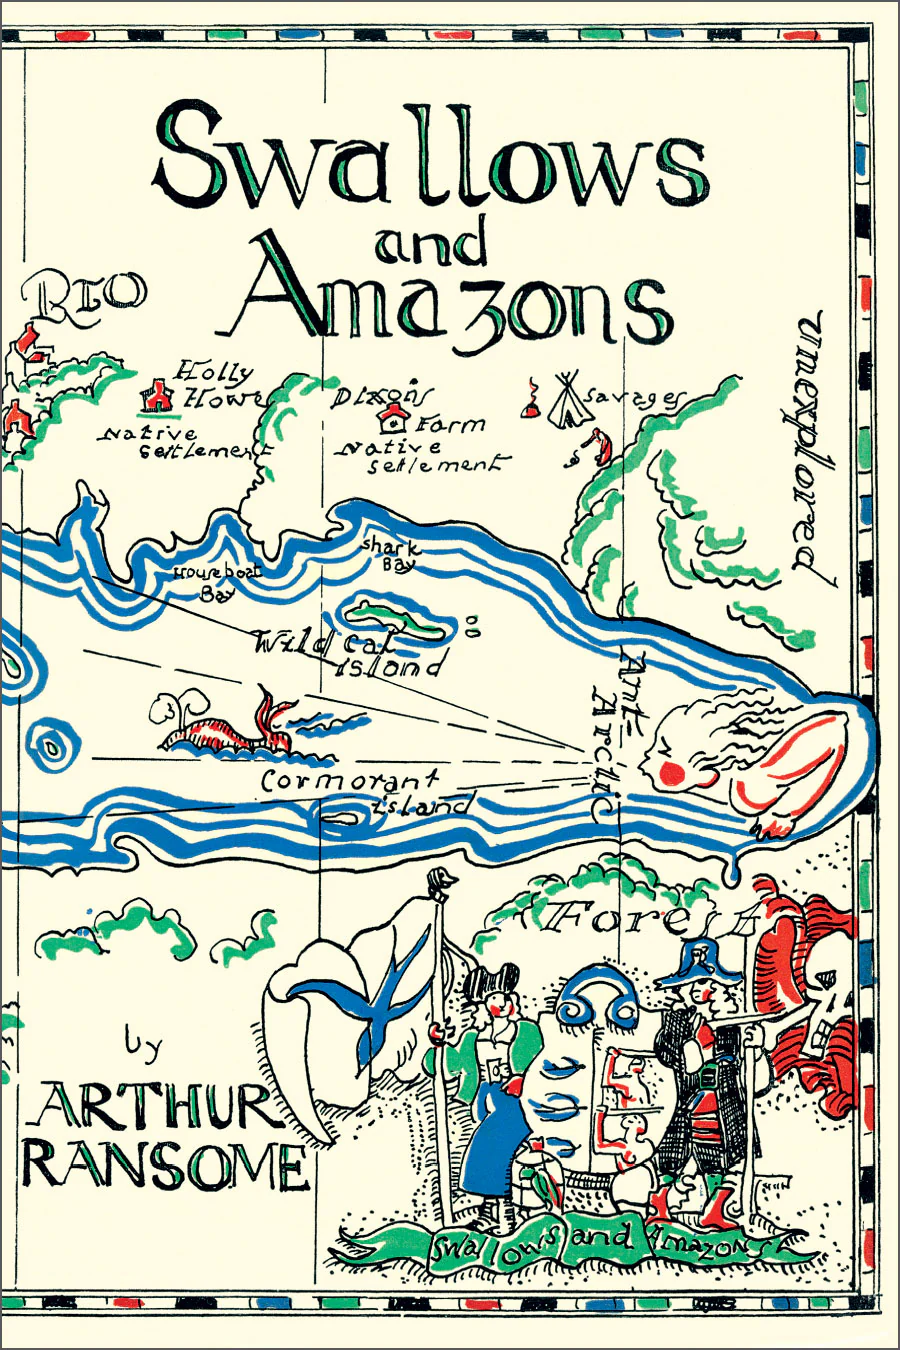 Swallows
and
Amazons
Rio
Holly
Howe
Native
Settlement
Dixon's
Farm
Native
settlement
Savages
unexplored
shark
Bay
Houseboat
Bay
Wild cat
island
Ant
Arctic
Cormorant
island
Forest
by
ARTHUR
RANSOME
Swallows and Amazons